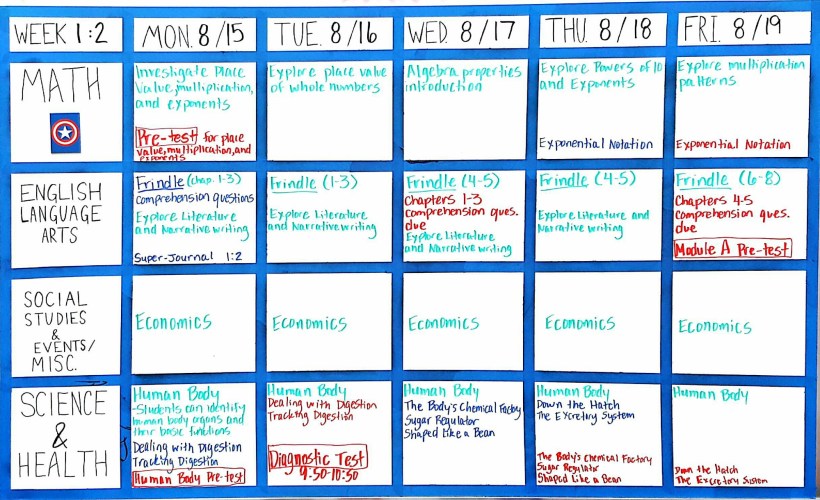 WEEK 1:2
MON. 8/15
TUE. 8/16
WED. 8/17
THU. 8/18
FRI. 8/19
MATH
Investigate Place
Value, multiplication,
and exponents
Pre-test for place
value, multiplication, and
exponents
Explore place value
of whole numbers
Algebra properties
introduction
Explore Powers of 10
and Exponents
Exponential Notation
Explore multiplication
patterns
Exponential Notation
ENGLISH
LANGUAGE
ARTS
Frindle (chap. 1-3)
comprehension questions
Explore Literature
and Narrative writing
Super-Journal 1:2
Frindle (1-3)
Explore Literature
and Narrative writing
Frindle (4-5)
Chapters 1-3
comprehension ques.
due
Explore Literature
and Narrative writing
Frindle (4-5)
Explore Literature and
Narrative writing
Frindle (6-8)
Chapters 4-5
comprehension ques.
due
Module A Pre-test
SOCIAL
STUDIES
&
EVENTS/
MISC.
Economics
Economics
Economics
Economics
Economics
SCIENCE
&
HEALTH
Human Body
-Students can identify
human body organs and
their basic functions
Dealing with Digestion
Tracking Digestion
Human Body Pre-test
Human Body
Dealing with Digestion
Tracking Digestion
Diagnostic Test
9:50-10:50
Human Body
The Body's Chemical Factory
Sugar Regulator
Shaped Like a Bean
Human Body
Down the Hatch
The Excretory System
The Body's Chemical Factory
Sugar Regulator
Shaped Like a Bean
Human Body
Down the Hatch
The Excretory System